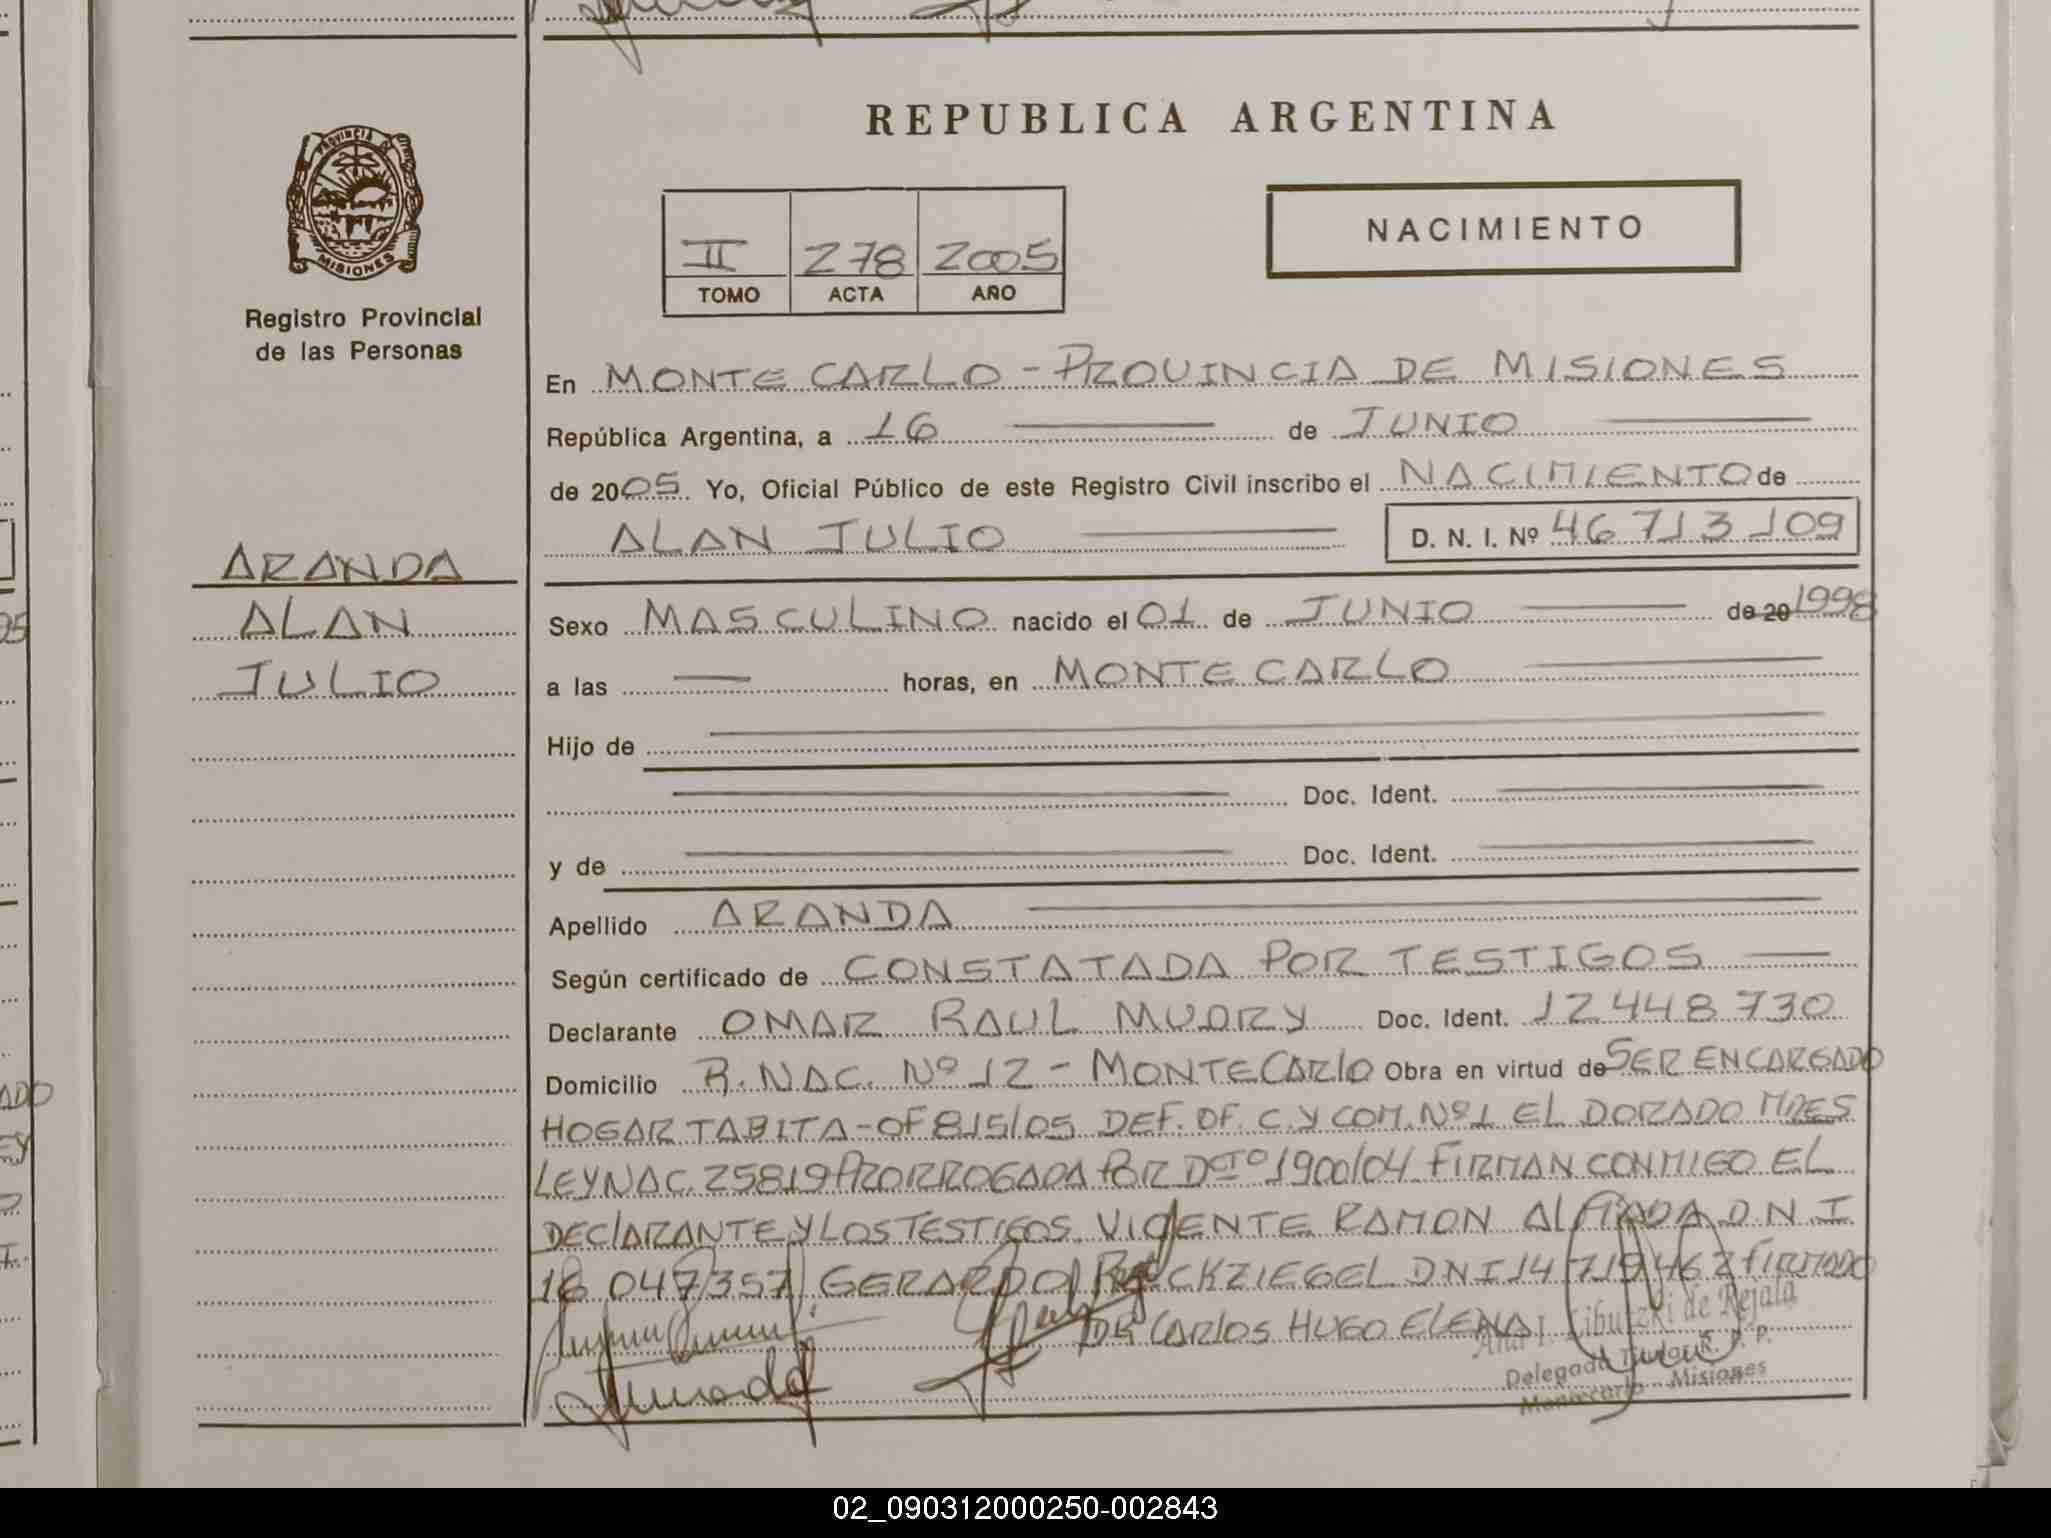 REPUBLICA ARGENTINA
PROVINCIA DE
MISIONES
NACIMIENTO
II 278 2005
TOMO ACTA AÑO
Registro Provincial
de las Personas
En MONTE CARLO - PROVINCIA DE MISIONES
República Argentina, a 16 de JUNIO
de 2005. Yo, Oficial Público de este Registro Civil inscribo el NACIMIENTO de
ALAN JULIO D. N. I. Nº 46 713 109
ARANDA
ALAN
JULIO
Sexo MASCULINO nacido el 01 de JUNIO de 20 1998
a las horas, en MONTE CARLO
Hijo de
Doc. Ident.
y de Doc. Ident.
Apellido ARANDA
Según certificado de CONSTATADA POR TESTIGOS
Declarante OMAR RAUL MUDRY Doc. Ident. 12 448 730
Domicilio R. NAC. Nº 12 - MONTECARlO Obra en virtud de SER ENCARGADO
HOGAR TABITA - OF 815/05 DEF. OF. C. Y COM. Nº 1 EL DORADO MNES
LEY NAC. 25819 PRORROGADA POR DCTO 1900/04 FIRMAN CONMIGO EL
DEClARANTE Y LOS TESTIGOS VICENTE RAMON D N I
16 047 357 GERARDO D N I 14 719 462 FIRMADO
DR CARlOS HUGO ELENA
de Rejala
Delegada Titular R. P. P.
Montecarlo - Misiones
02_090312000250-002843